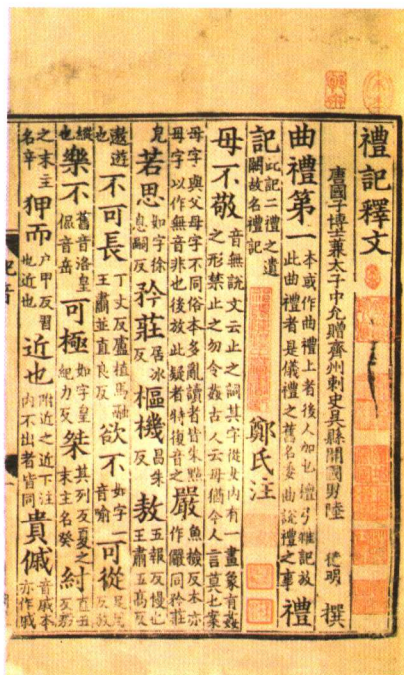 禮記釋文
唐國子博士兼太子中允贈齊州刺史吳縣開國男陸 德明 撰
曲禮第一 本或作曲禮上者後人加也檀弓雜記放此曲禮者是儀禮之舊名委曲說禮之事 禮
記 此記二禮之遺闕故名禮記 鄭氏注
毋不敬 音無說文云止之詞其字從女內有一畫象有姦之形禁止之勿令姦古人云毋猶今人言莫也案
毋字與父母字不同俗本多亂讀者皆朱點母字以作無音非也後放此疑者特復音之 嚴 魚檢反本亦作儼同矜莊
皃 若思 如字徐息嗣反 矜莊 居冰反 樞機 昌朱反 敖 五報反慢也王肅五高反
遨遊也 不可長 丁丈反盧植馬融王肅並直良反 欲不 如字一音喻 可從 足用反放
縱也 樂不 舊音洛皇侃音岳 可極 如字皇紀力反 桀 其列反夏之末主名癸 紂 直丑反殷
之末主名辛 狎而 戶甲反習也近也 近也 附近之近下注內不出者皆同 貴戚 音戚本亦作戚